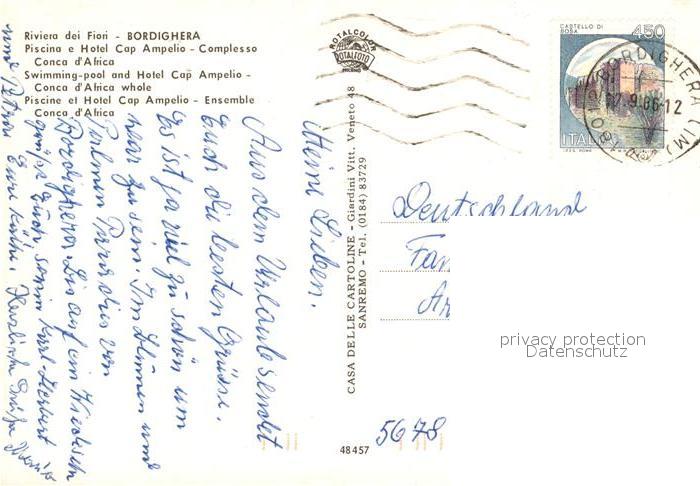 Riviera dei Fiori - BORDIGHERA
Piscina e Hotel Cap Ampelio - Complesso
Conca d'Africa
Swimming-pool and Hotel Cap Ampelio -
Conca d'Africa whole
Piscine et Hotel Cap Ampelio - Ensemble
Conca d'Africa
ROTALCOLOR
ROTALFOTO
MILANO
CASTELLO DI
BOSA
450
ITALIA
BORDIGHERA (IM)
9.86-12
Meine Lieben.
Aus dem Urlaub sendet
Euch die besten Grüsse.
Es ist ja viel zu schön um
wahr zu sein. Im Blumen und
Palmen Paradies von
Bordighera. Bis auf ein Wiedersehn
grüsst Euch Karl-Herbert
und
Eure Käthe. Herzliche Grüße
CASA DELLE CARTOLINE - Giardini Vitt. Veneto 48
SANREMO - Tel. (0184) 83729
Deutschland
Fam
privacy protection
Datenschutz
5678
48457